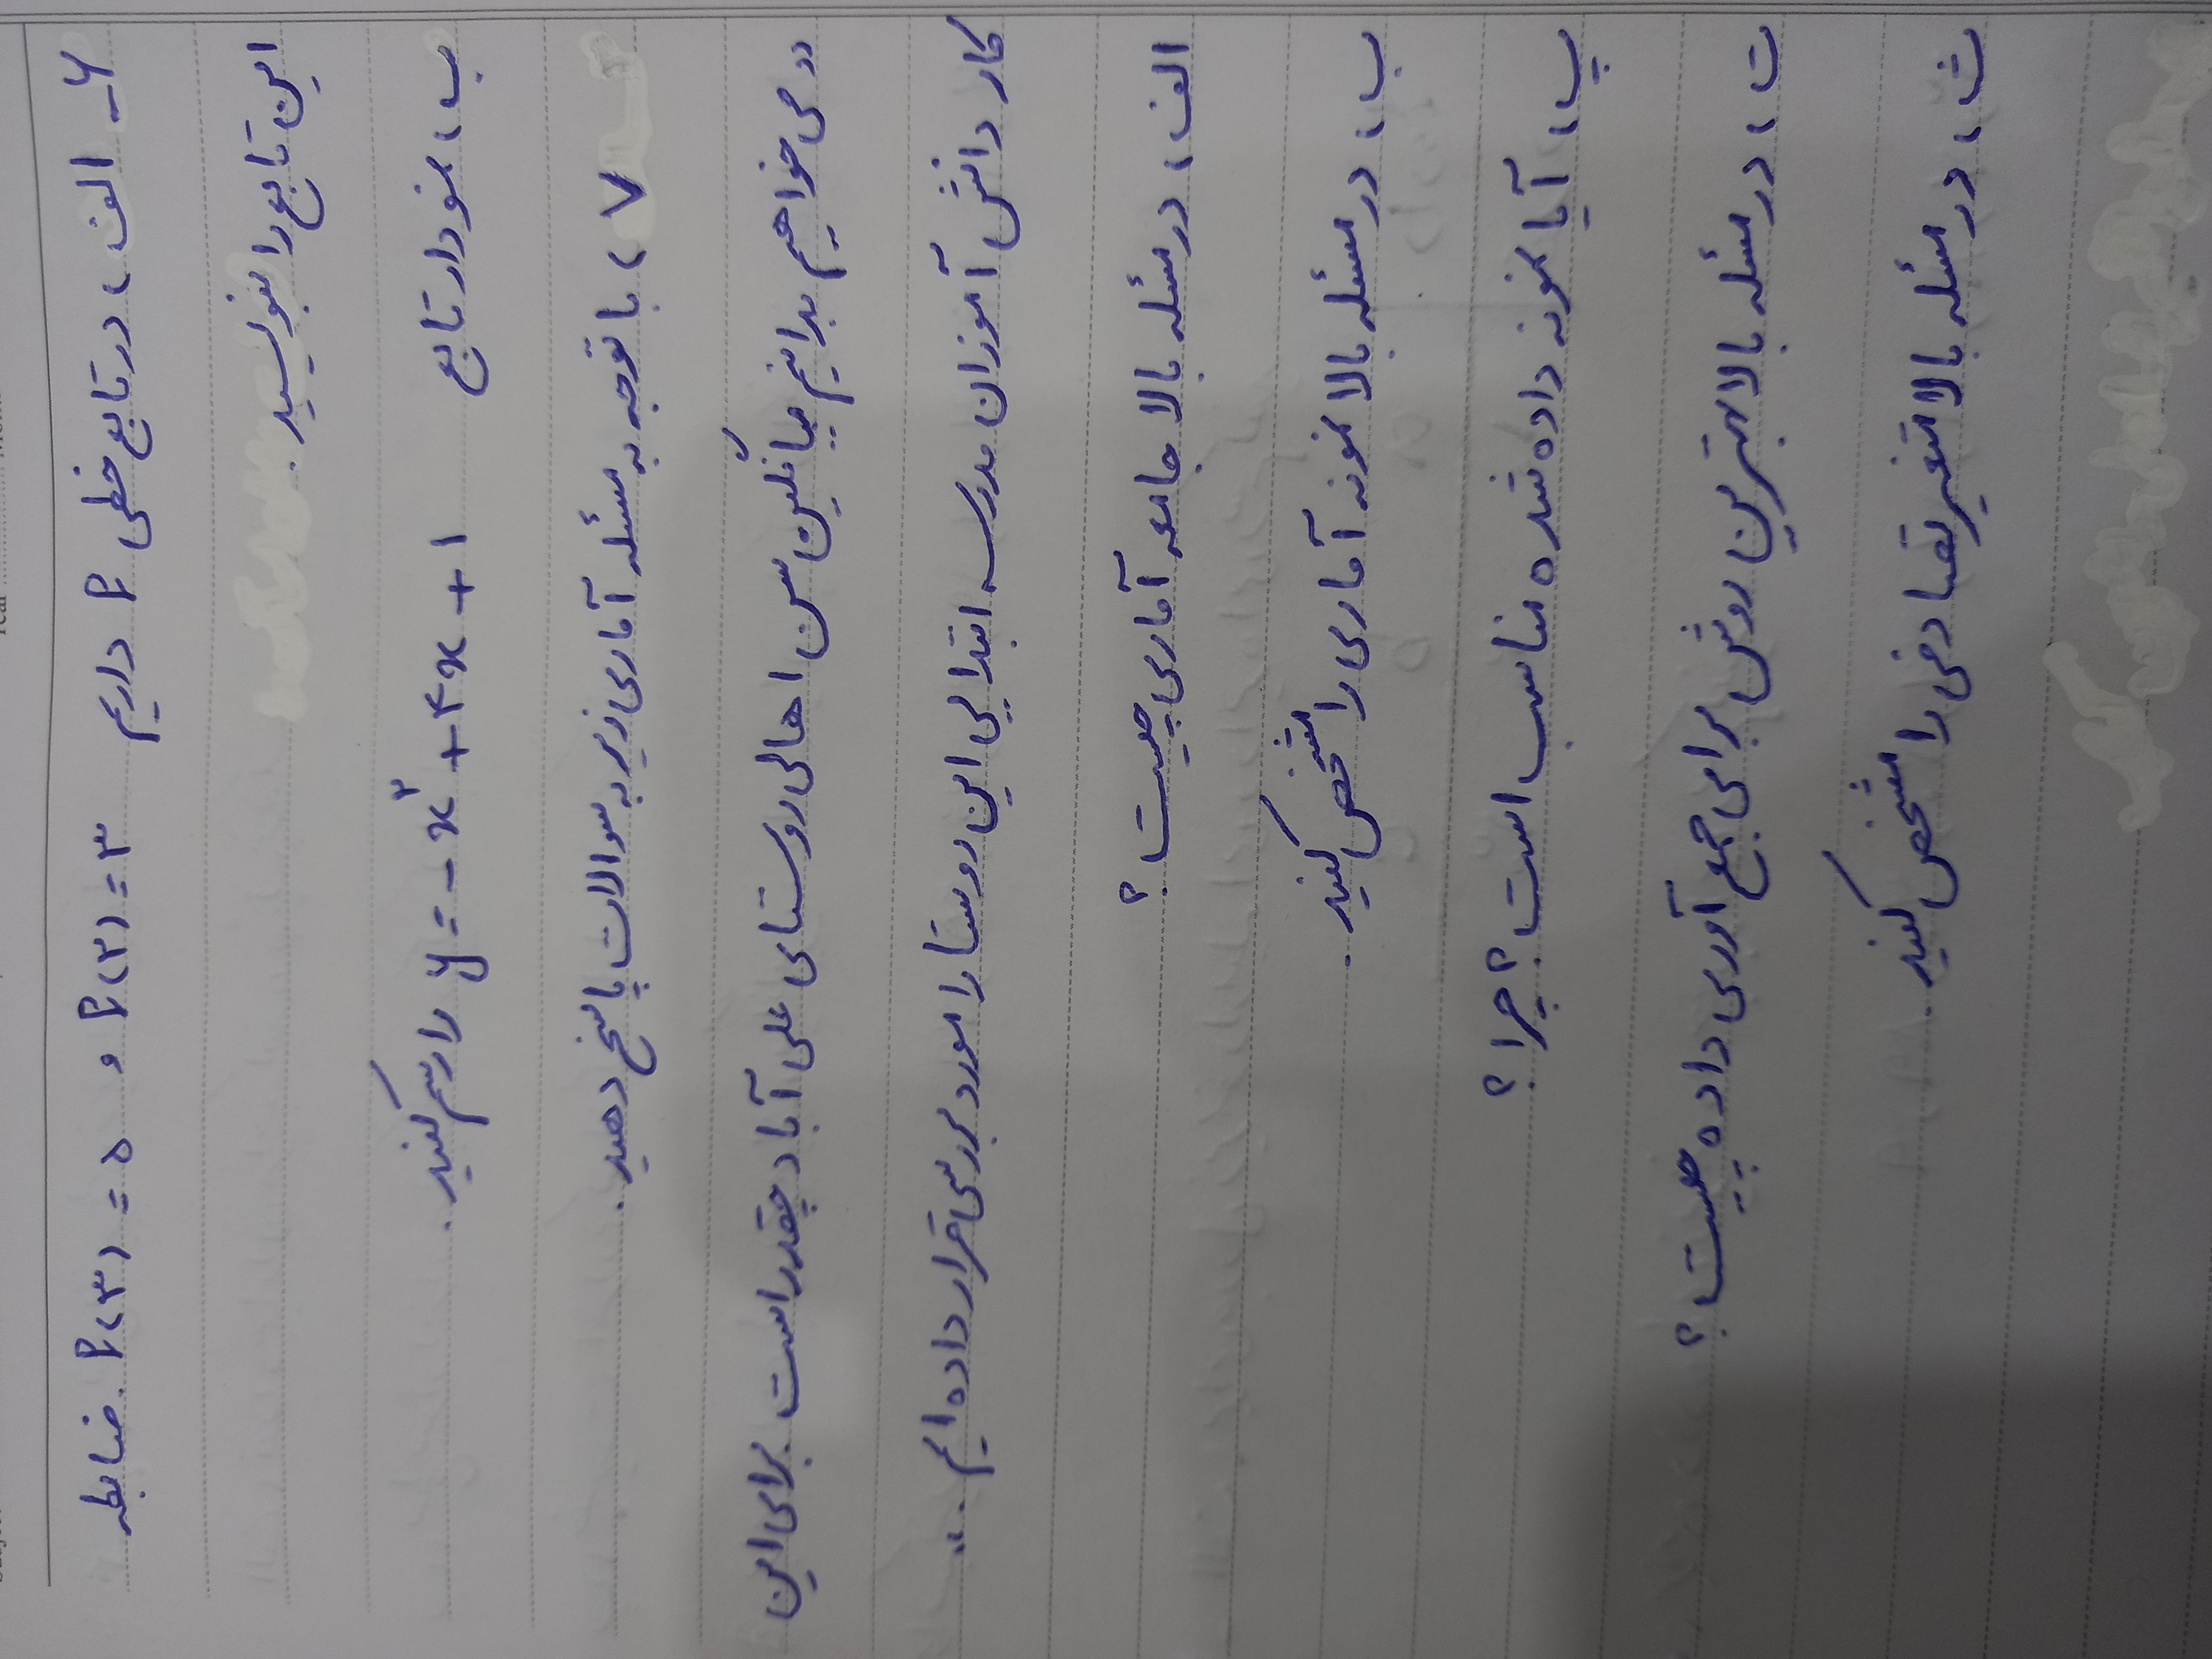 ۶- الف، در تابع خطی f داریم f(۲)=۳ و f(۳)=۵. ضابطه
این تابع را بنویسید.
ب، نمودار تابع y=-x²+۴x+۱ را رسم کنید.
۷، با توجه به مسئله آماری زیر به سوالات پاسخ دهید.
«می خواهیم بدانیم میانگین سن اهالی روستای علی آباد چقدر است برای این
کار دانش آموزان مدرسه ابتدایی این روستا را مورد بررسی قرار داده ایم.»
الف، در مسئله بالا جامعه آماری چیست؟
ب، در مسئله بالا نمونه آماری را مشخص کنید.
پ، آیا نمونه داده شده مناسب است؟ چرا؟
ت، در مسئله بالا بهترین روش برای جمع آوری داده چیست؟
ث، در مسئله بالا متغیر تصادفی را مشخص کنید.